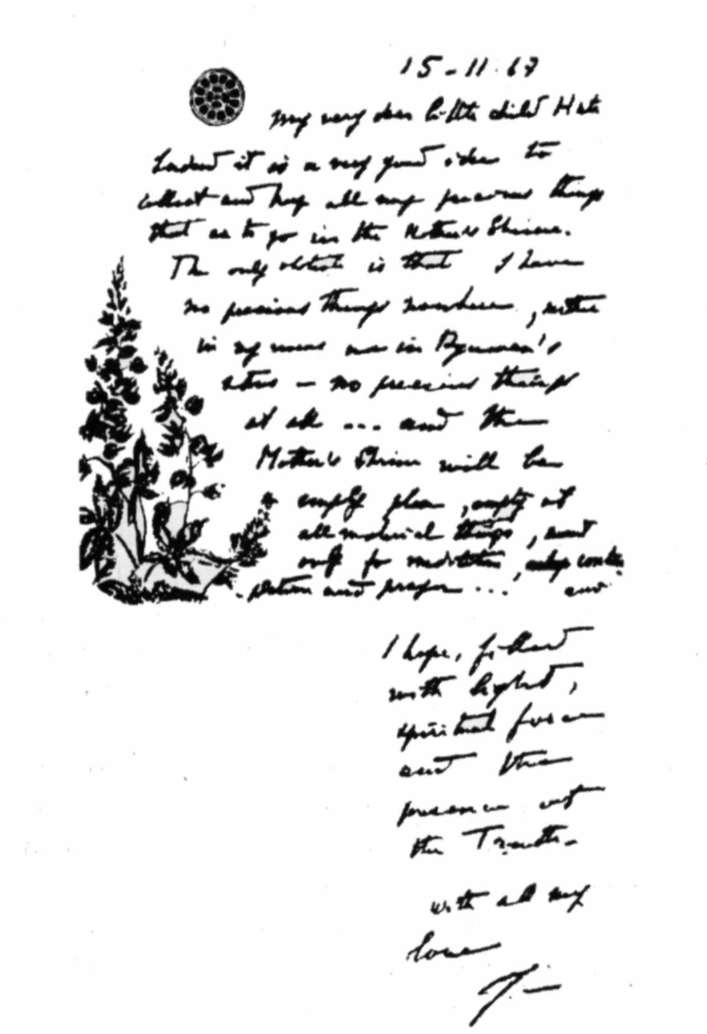 15-11-67
My very dear little child Huta
Indeed it is a very good idea to
collect and keep all my precious things
that are to go in the Mother's Shrine.
The only obstacle is that I have
no precious things nowhere, neither
in my rooms nor in Pyumen's
stores — no precious things
at all ... and the
Mother's Shrine will be
an empty place, empty of
all material things, and
only for meditation, contem-
plation and prayer ... and
I hope, filled
with light,
spiritual force
and the
presence of
the Truth.
with all my
love